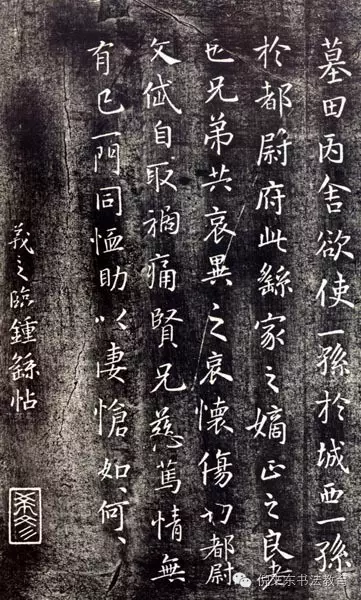 墓田丙舍欲使一孫於城西一孫
於都尉府此繇家之嫡正之良者
也兄弟共哀異之哀懷傷切都尉
文岱自取禍痛賢兄慈篤情無
有已一門同恤助以悽愴如、何、
羲之臨鍾繇帖
倪文东书法教育